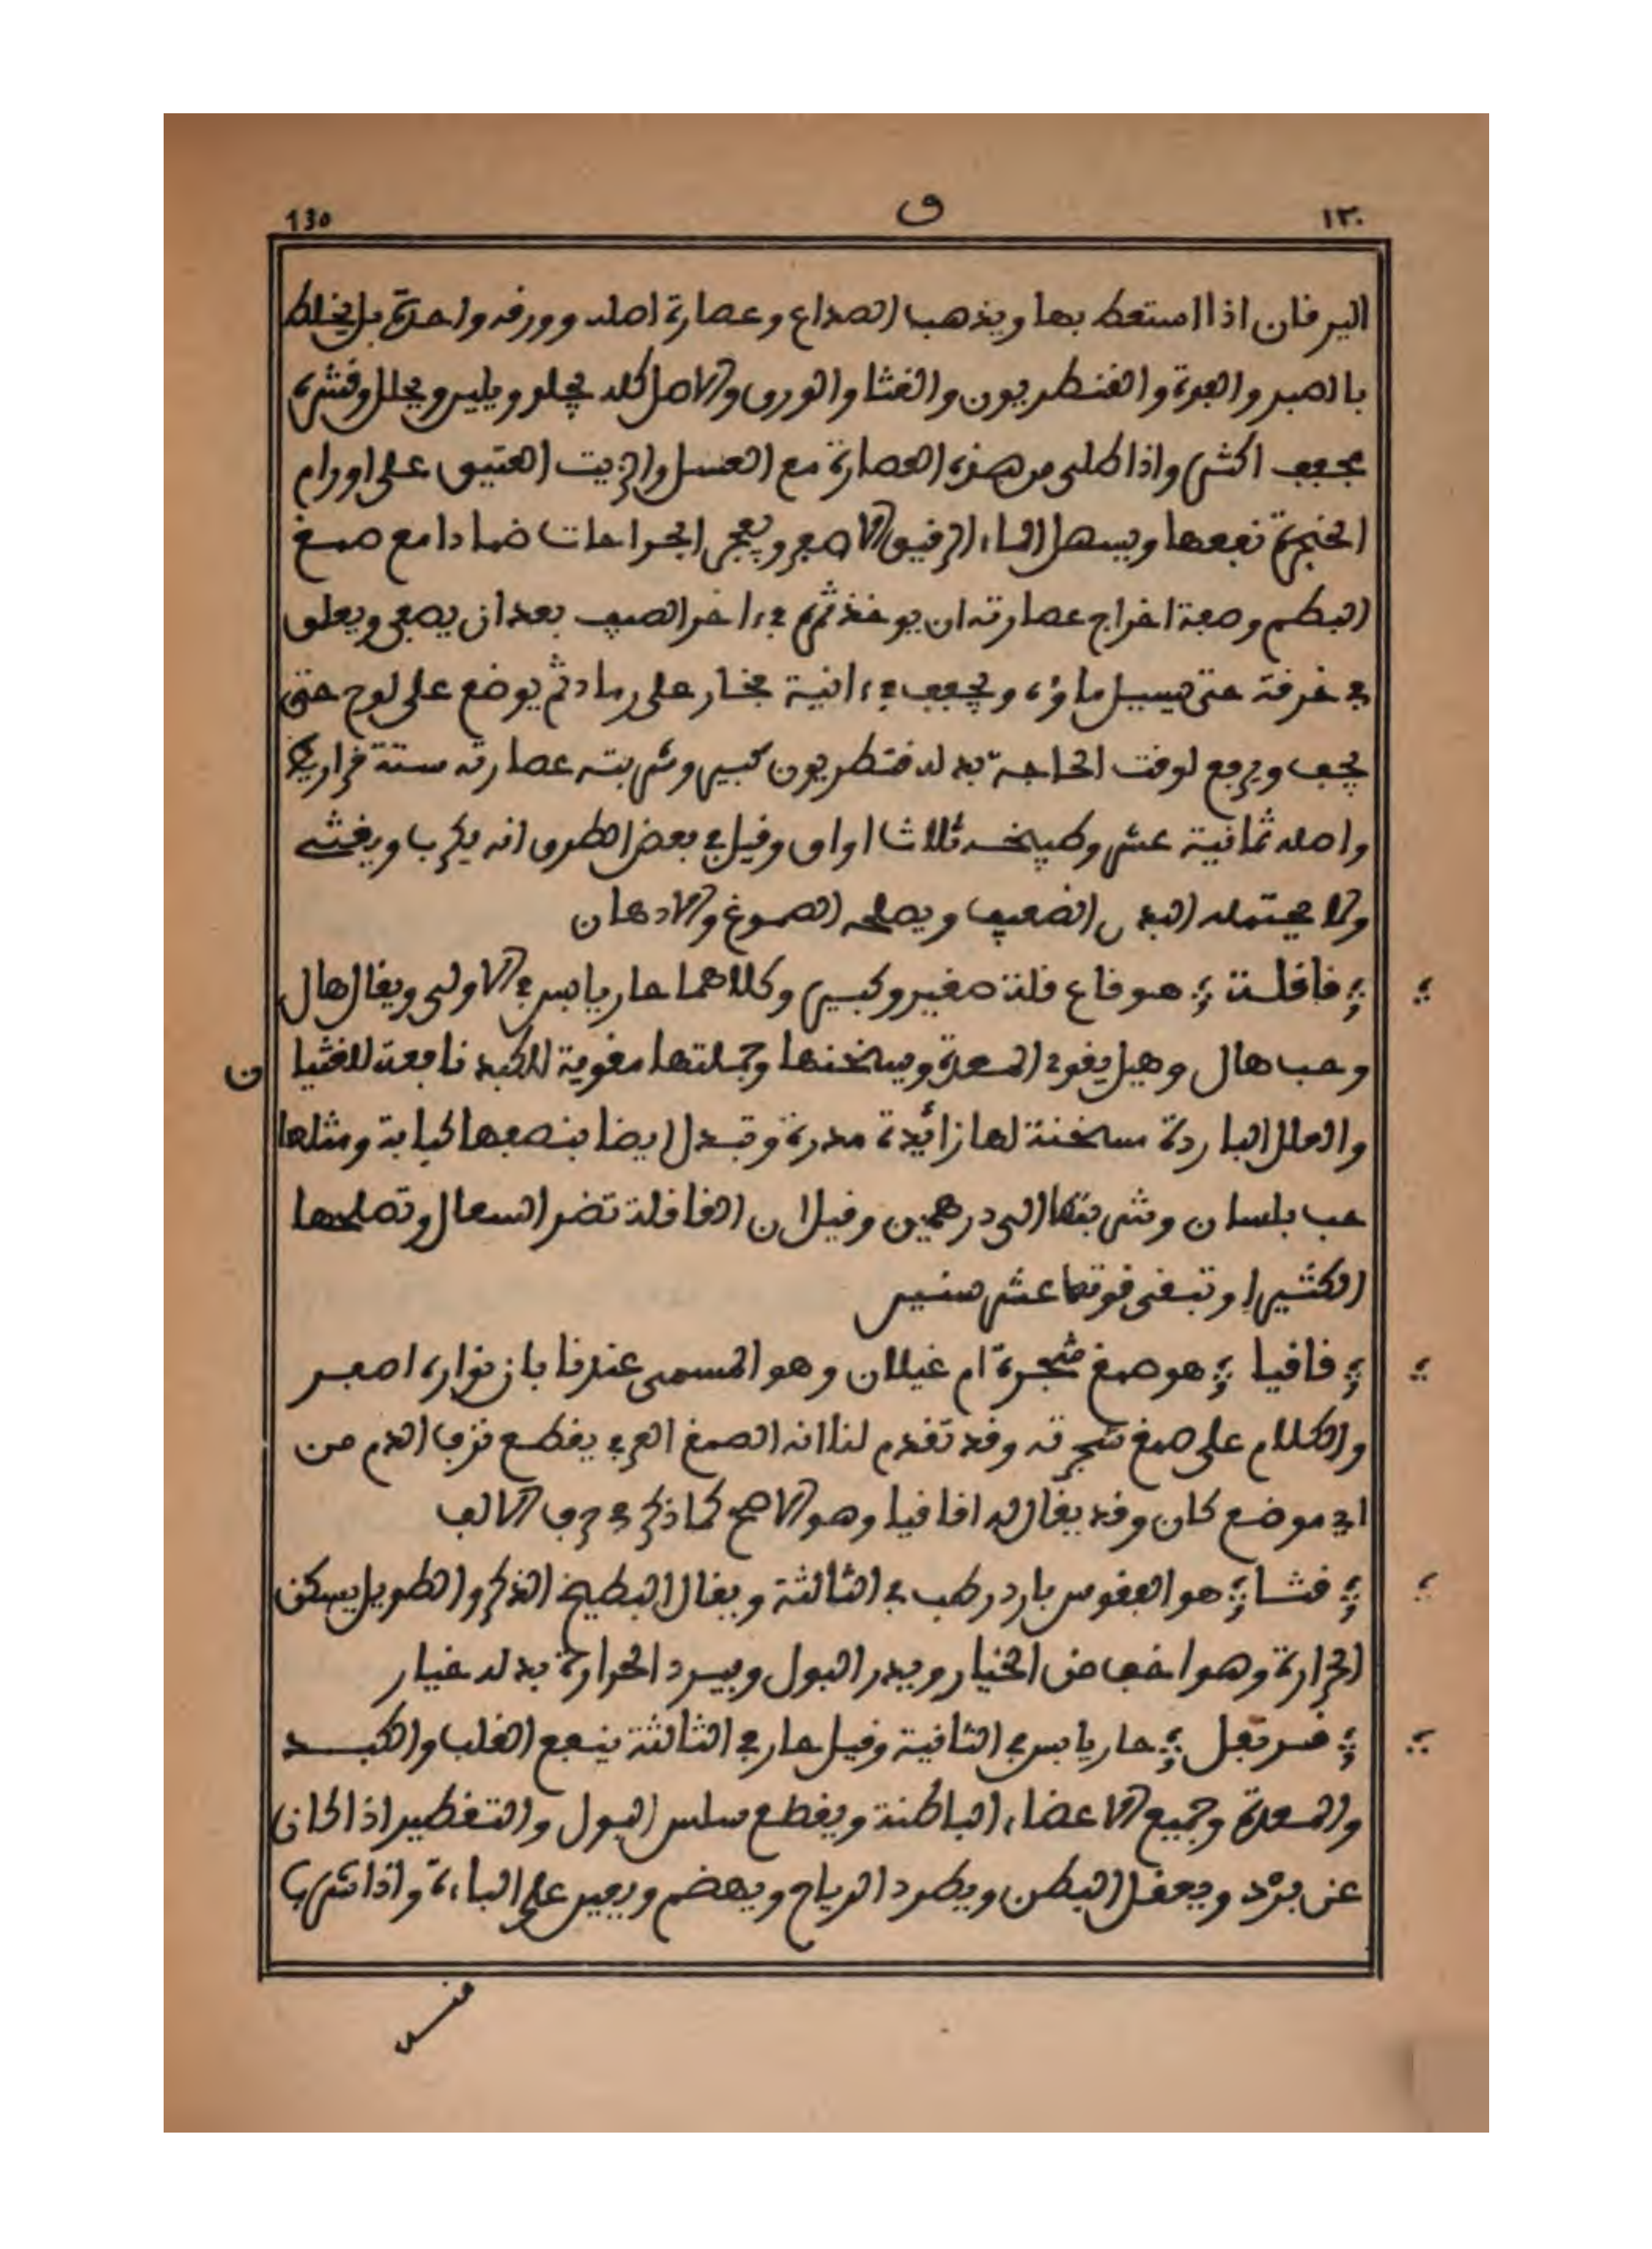 ١٣٠ ق 130
اليرقان اذا استعط بها ويذهب الصداع وعصارة اصله وورقه واحدة بل يخلط
بالصبر والفوة والقنطريون والقثا والورق والاصل كله يجلو ويلين ويحلل وقشره
يجفف اكثر واذا طلي من هذه العصارة مع العسل والزيت العتيق على اورام
الحنجرة نفعها ويسهل الماء الرقيق الاصفر ويفجر الجراحات ضمادا مع صمغ
البطم وصفة اخراج عصارته ان يوخذ ثمره في ءاخر الصيف بعد ان يصفى ويعلق
في خرقة حتى يسيل ماؤه ويجفف في ءانية فخار على رماد ثم يوضع على لوح حتى
يجف ويرفع لوقت الحاجة بدله قنطريون كبير وشربته عصارته ستة قراريط
واصله ثمانية عشر وطبيخه ثلاثا اواق وقيل في بعض الطرق انه يكرب ويغشي
ولا يحتمله البدن الضعيف ويصلحه الصموغ والادهان
؞ قاقلة ؞ هو قاع قلة صغير وكبير وكلاهما حار يابس في الاولى ويقال هال
وحب هال وهيل يقوي المعدة ويسخنها وجملتها مقوية للكبد نافعة للغثيا
ن
والعلل الباردة مسخنة لها زائدة مدرة وتبدل ايضا بنصفها كبابة ومثلها
حب بلسان وشربتها الى درهمين وقيل ان القاقلة تضر السعال وتصلحها
الكثيرا وتبقى قوتها عشر سنين
؞ قاقيا ؞ هو صمغ شجرة ام غيلان وهو المسمى عندنا بان نواره اصفر
والكلام على صمغ شجرته وقد تقدم لنا انه الصمغ العربي يقطع نزف الدم من
اي موضع كان وقد يقال له اقاقيا وهو الاصح كما ذكر في حرف الالف
؞ قثا ؞ هو الفقوس بارد رطب في الثالثة ويقال البطيخ الذكر والطويل يسكن
الحرارة وهو اخف من الخيار ويدر البول ويبرد الحرارة بدله خيار
؞ قرنفل ؞ حار يابس في الثانية وقيل حار في الثالثة ينفع القلب والكبد
والمعدة وجميع الاعضاء الباطنة ويقطع سلس البول والتقطير اذا كان
عن برد ويعقل البطن ويطرد الرياح ويهضم ويعين على الباءة واذا شرب